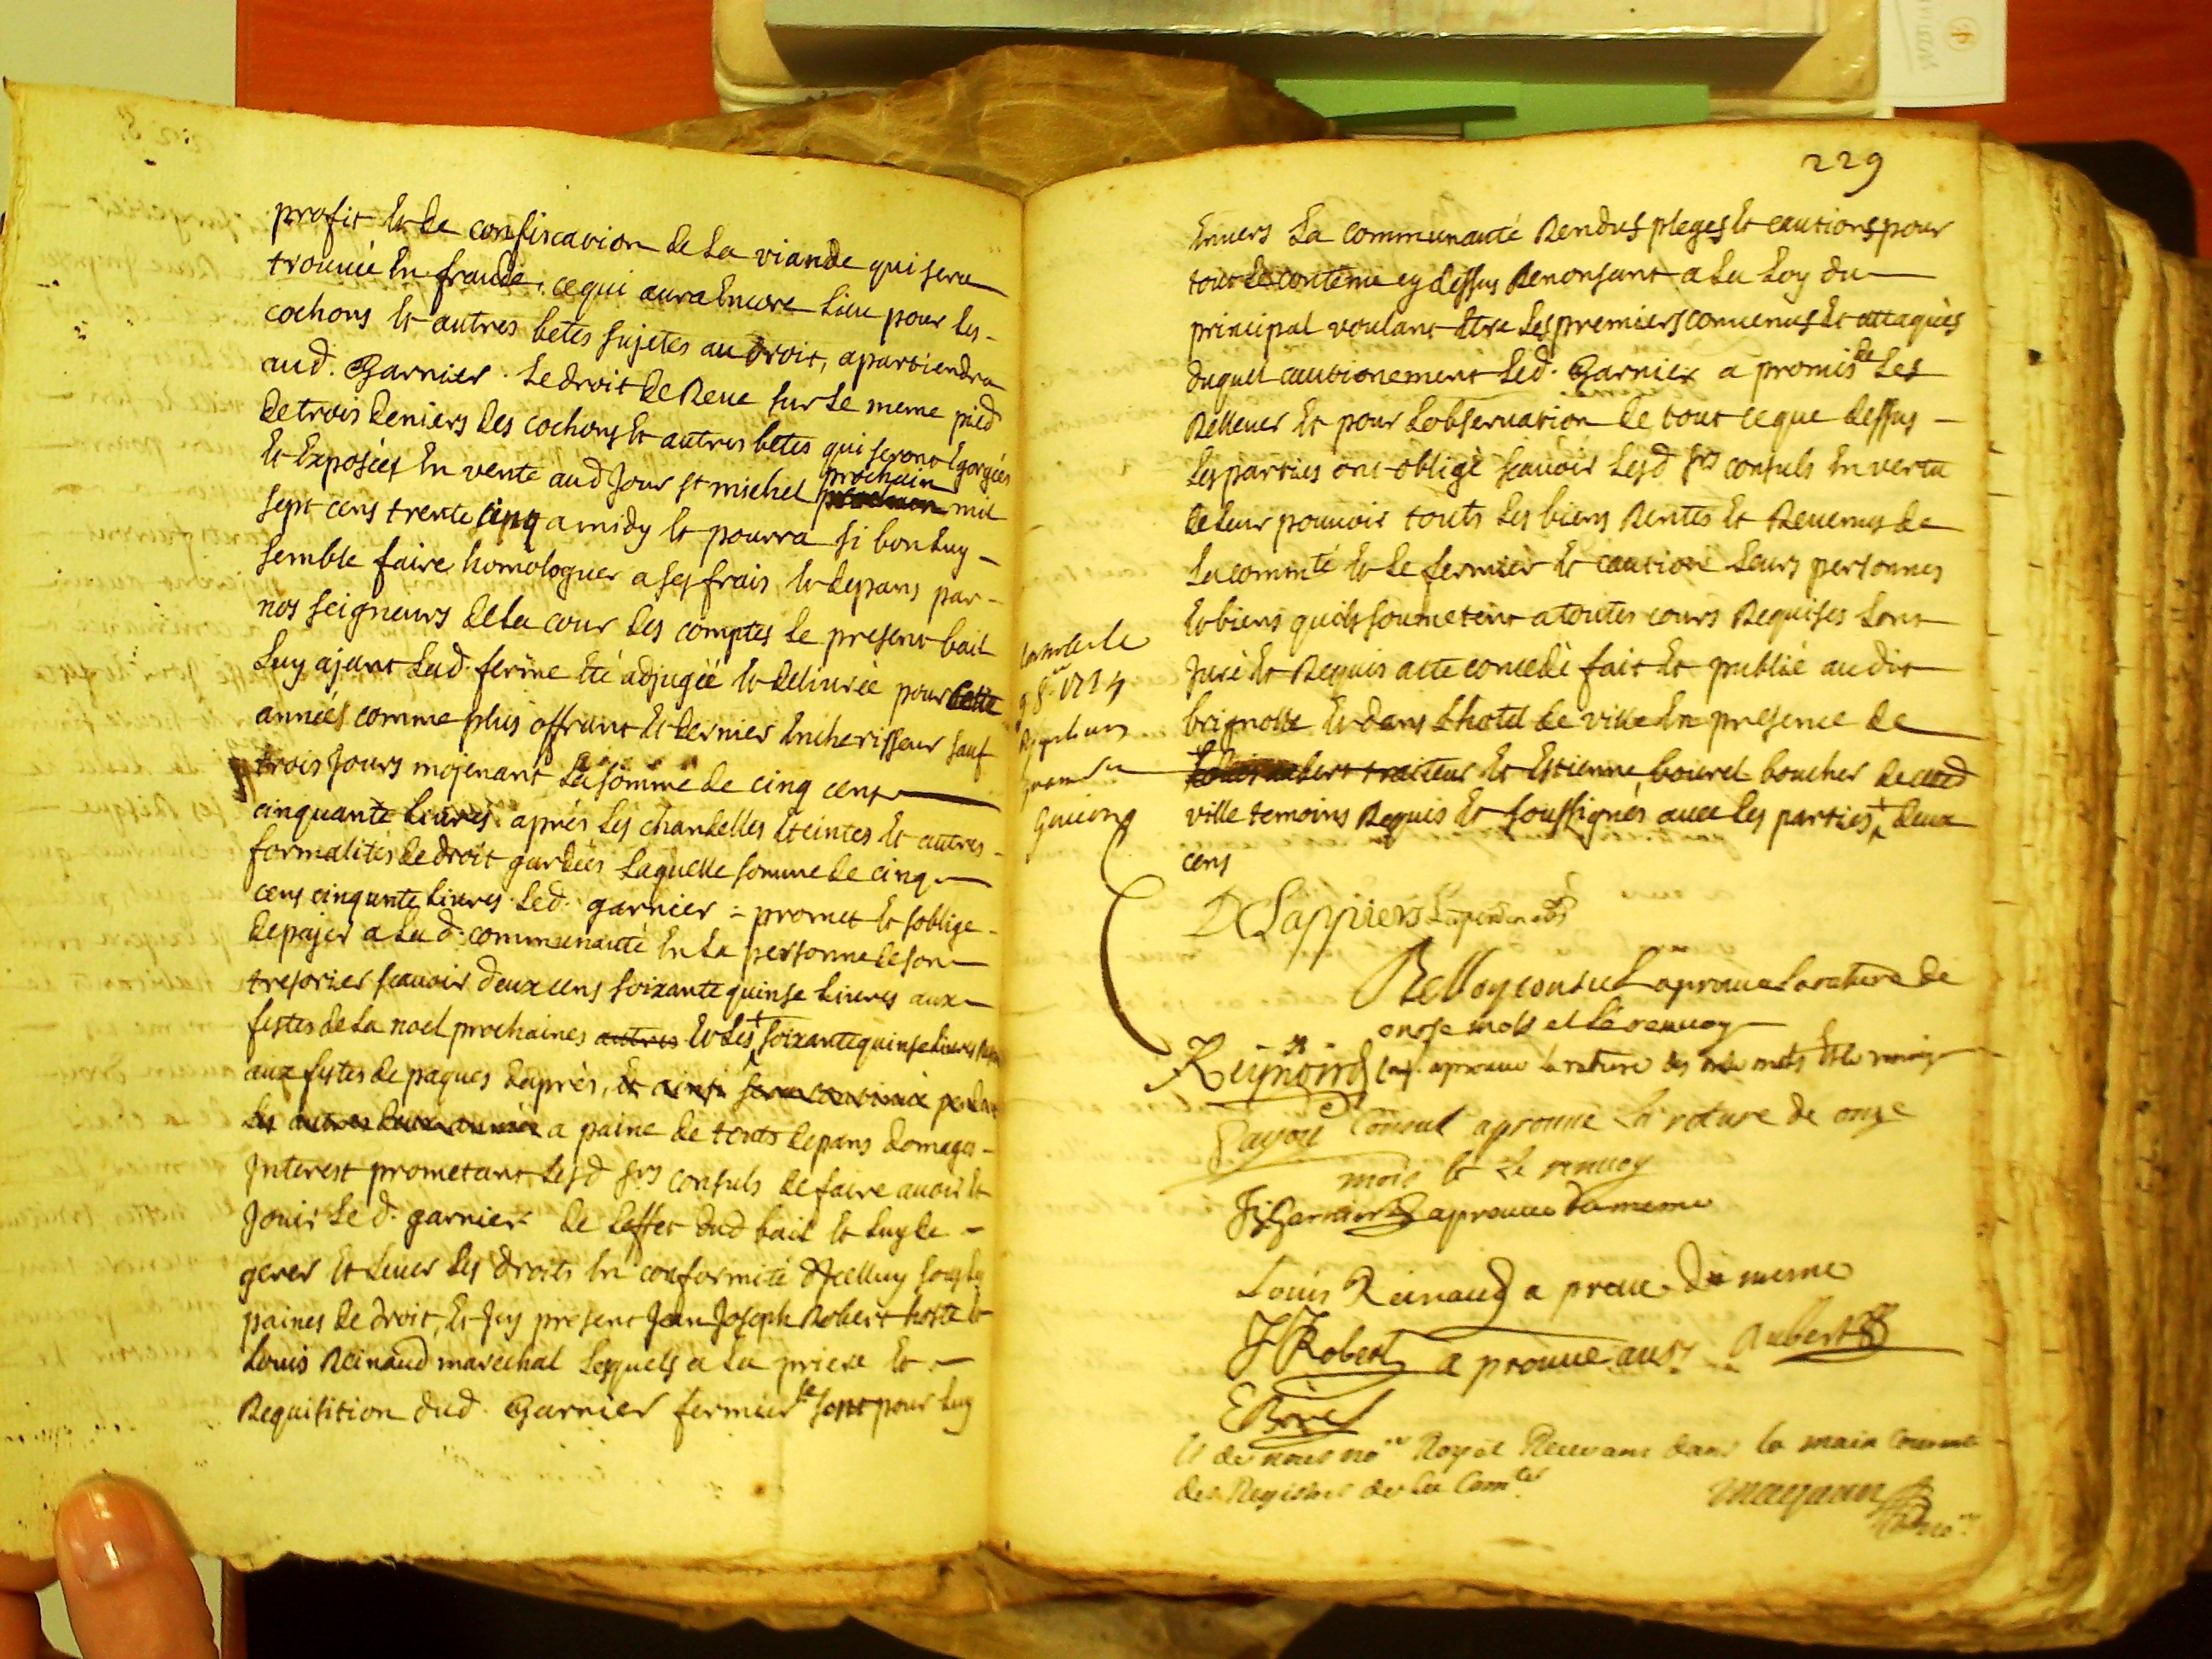 profit et de confiscation de la viande qui sera
trouuée en fraude, ce qui aura encore lieu pour les
cochons et autres betes sujetes au droit, apartiendra
aud. Garnier. Le droit de Reue sur le meme pied
de trois deniers des cochons et autres betes qui seront Egorgées
et Exposées en vente aud Jour st michel prochain mil
sept cens trente cinq a midy et pourra si bon luy
semble faire homologuer a ses frais et depans par
nos seigneurs de la cour des comptes le present bail
Luy ajant Lad. ferme été adjugée et deliurée pour
années comme plus offrant et dernier Encherisseur sauf
trois Jours mojenant La somme de cinq cens
cinquante liures aprés Les chandelles éteintes et autres
formalités de droit gardées Laquelle somme de cinq
cens cinquante liures Led. garnier promet et soblige
de pajer a Lad. communauté En La personne de son
tresorier scauoir deux cens soixante quinse liures aux
festes de la noel prochaines autres et les + soixante quinse liures
aux festes de paques daprès, et ainsi sera continué
les autres deux années a paine de touts depans domages
Interest prometant Lesd srs consuls de faire auoir et
Jouir Le d. garnier de Leffet dud bail et luy de
gerer et Leuer Les droits En conformité dIcelluy sous Les
paines de droit, Et Icy présent Jean Joseph Robert hoste et
Louis Reinaud marechal Lesquels a La priere et
Requisition dud. Garnier fermier se sont pour luy
229
Enuers La communauté Rendus pleges et cautions pour
tout le contenu cy dessus Renonsant a La Loy du
principal voulant Etre Les premiers conuenus et attaqués
duquel cautionement Led. Garnier a promis de Les
Relleuer et pour Lobseruation de tout ce que dessus
Les parties ont obligé scauoir Lesd srs consuls En vertu
de leur pouuoir touts Les biens Rentes et Reuenus de
La comnté et Le fermier et caution Leurs personnes
et biens quils soumetent a toutes cours Requises Lont
Juré et Requis acte concedé fait et publié audit
brignolle et dans Lhotel de ville En presence de
et Estienne bourel boucher de cetted
ville temoins Requis et soussignés auec les parties + deux
cens
1734
DLappiers
Belloy consul aproue la rature de
onse mots et le renuoy
Reynoird aproue la rature des onse mots et le renuoy
consul aprouue la rature de onze
mois et le renuoy
Garnier aprouue du meme
Louis Reinaud a prouue du meme
JJRobert a prouue ausy Aubert
EBorel
et de nous nore Royal Receuant dans la main courante
des Registres de la Comté